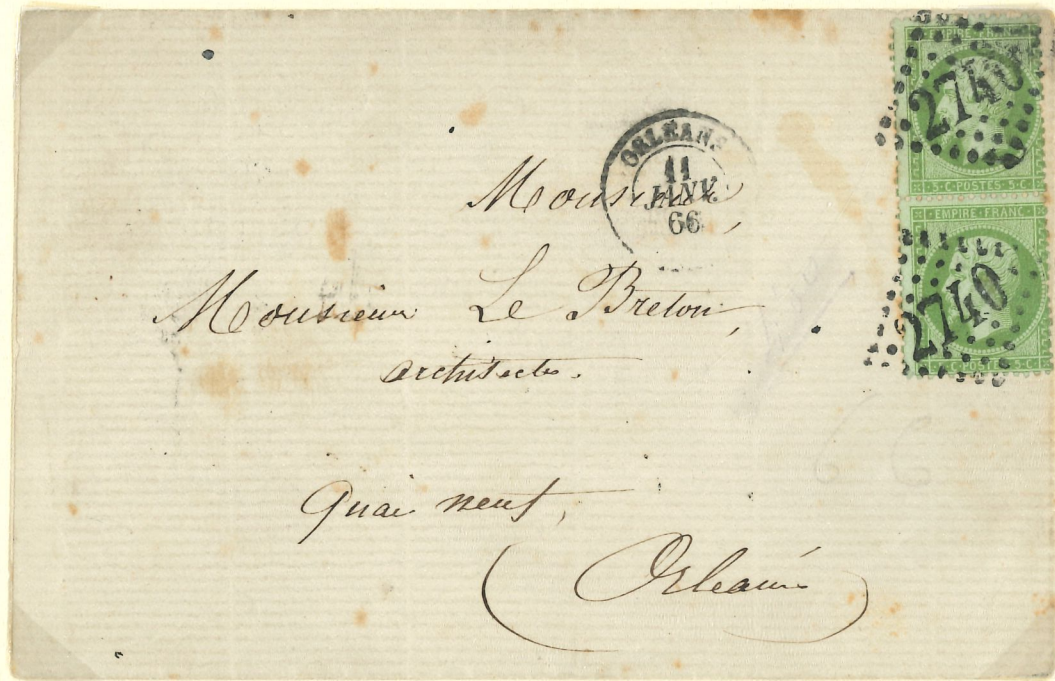 EMPIRE FRANC
2740
5 · C · POSTES · 5 · C
EMPIRE · FRANC
2740
5 · C · POSTES · 5 · C
ORLEANS
11
JANV.
66
Monsieur,
Monsieur Le Breton,
architecte.
Quai neuf,
Orléans